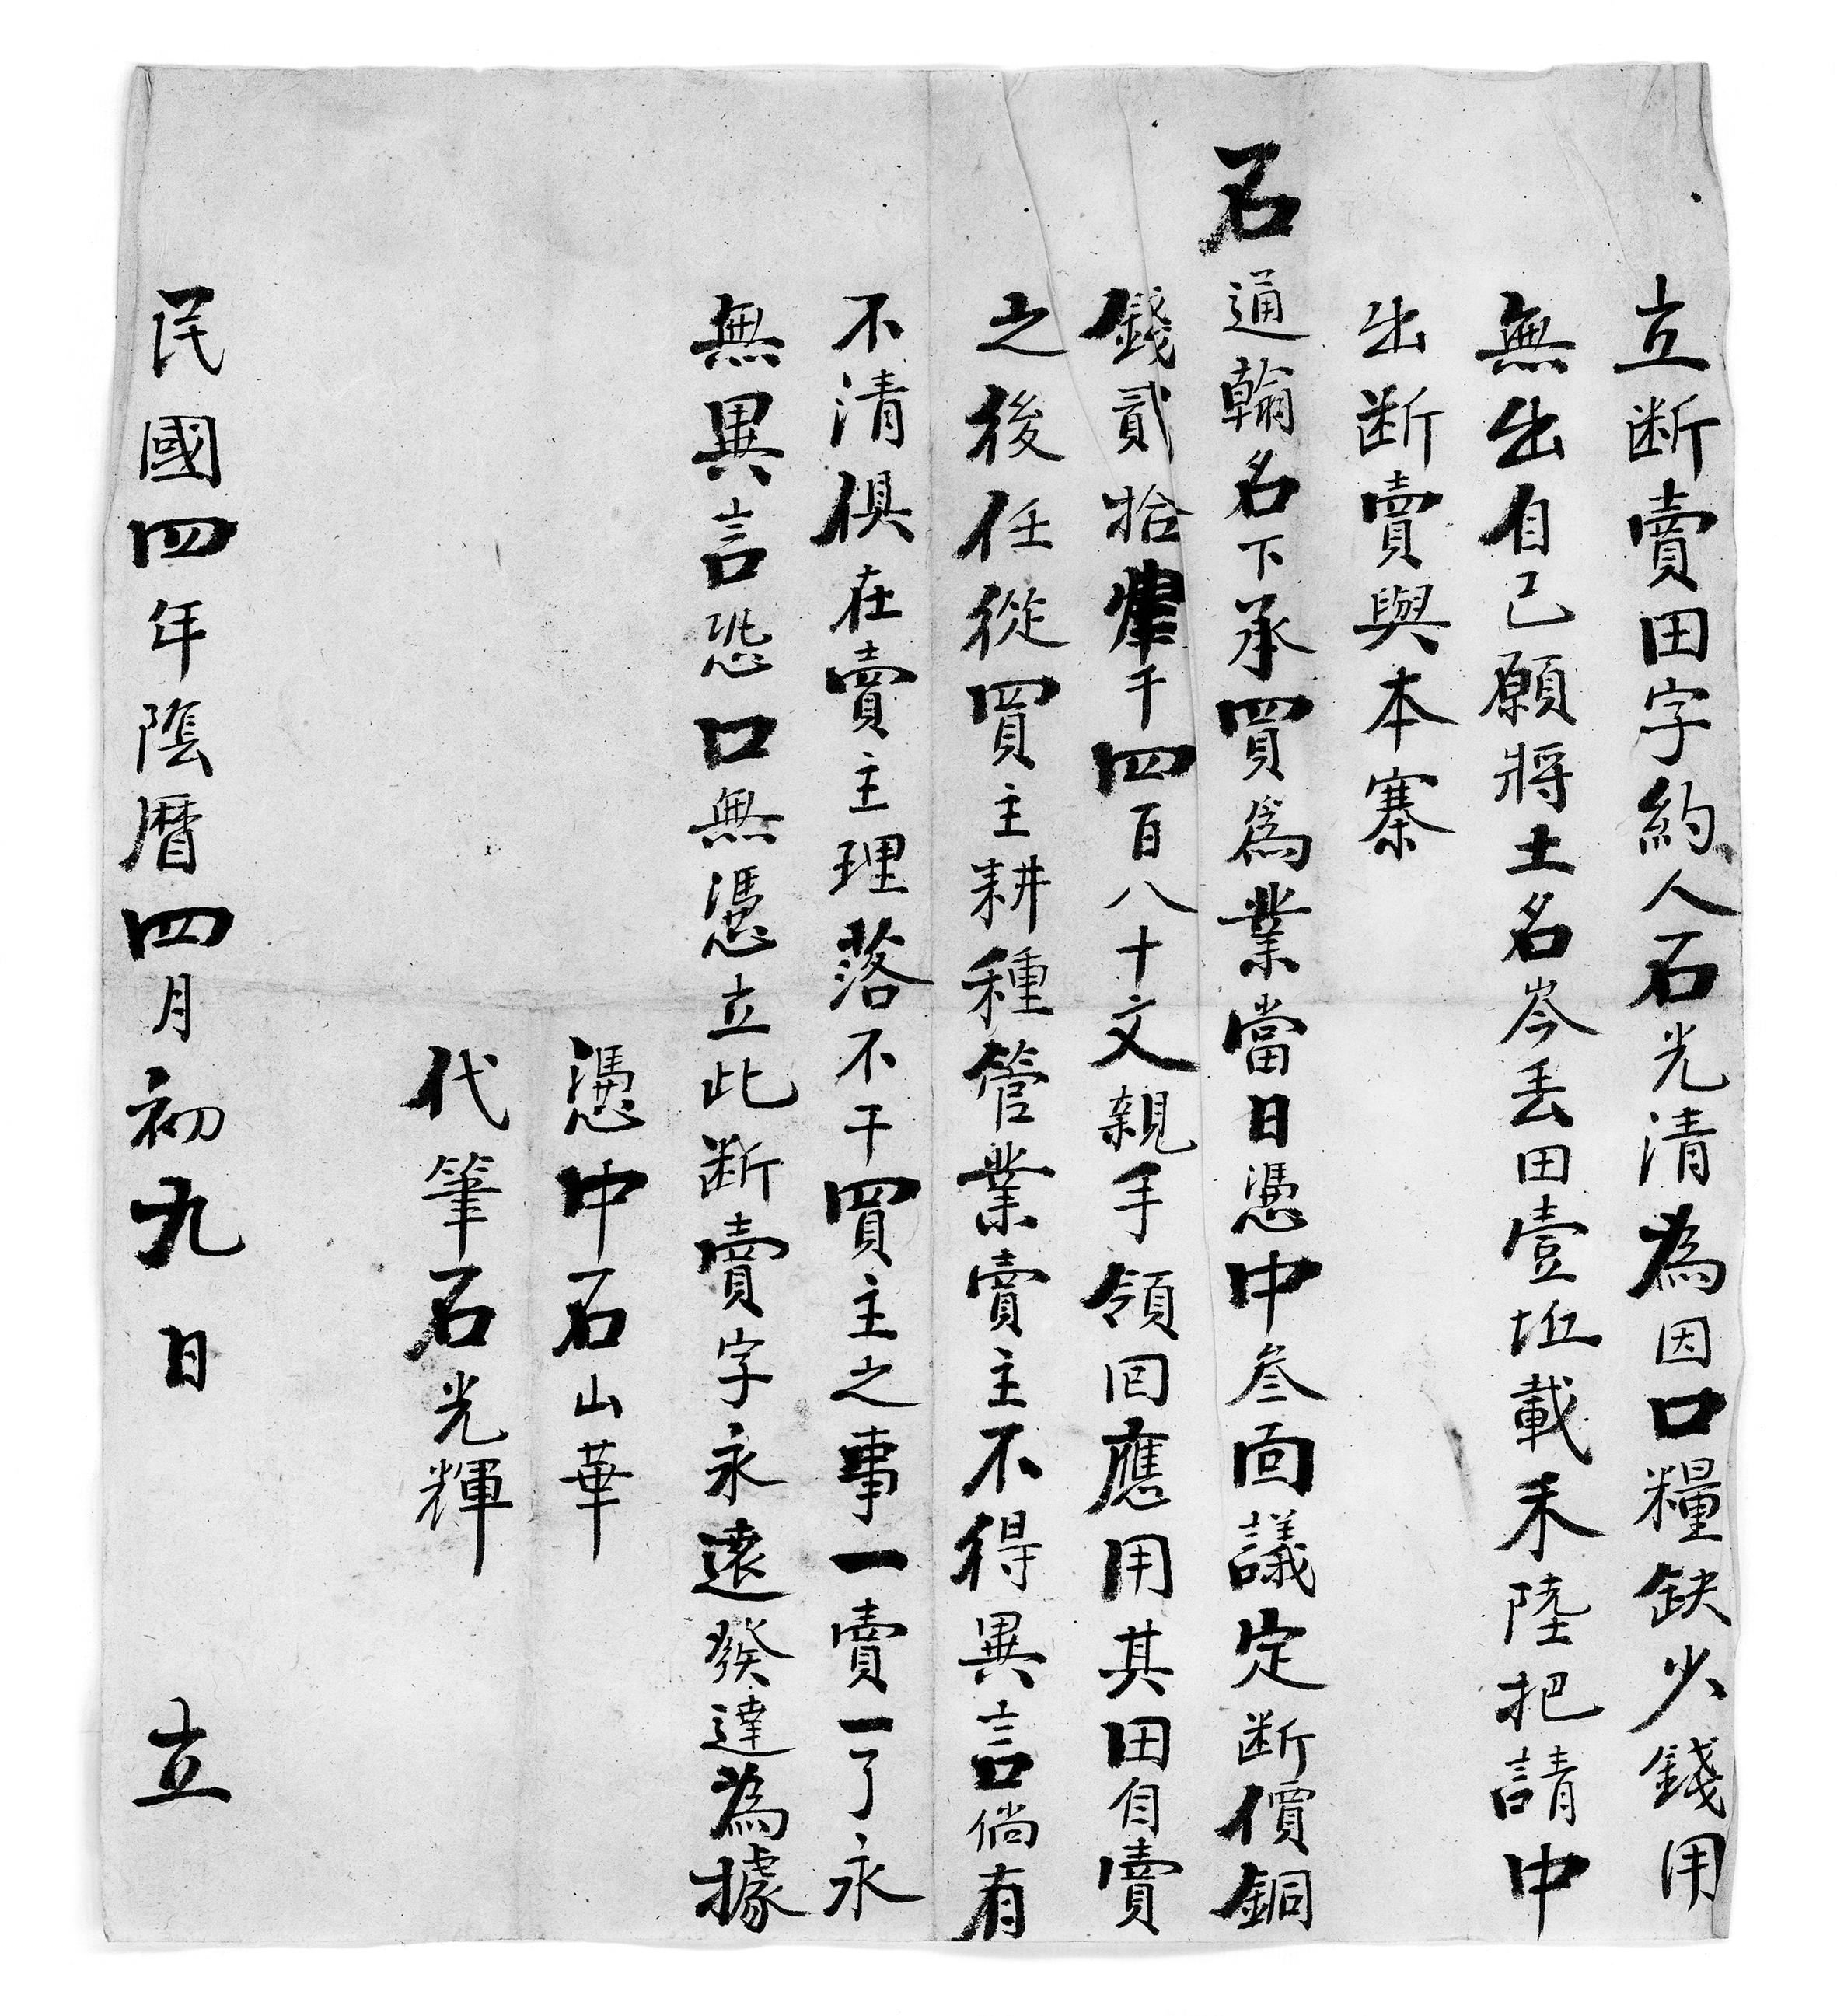 立断賣田字約人石光清為因口糧缺少錢用
無出自己願將土名岑丢田壹坵載禾陸把請中
出断賣與本寨
石通翰名下承買爲業當日憑中叁面議定断價銅
錢貳拾肆千四百八十文親手領回應用其田自賣
之後任從買主耕種管業賣主不得異言倘有
不清俱在賣主理落不干買主之事一賣一了永
無異言恐口無憑立此断賣字永遠發達為據
憑中石山華
代筆石光輝
民國四年隂曆四月初九日立